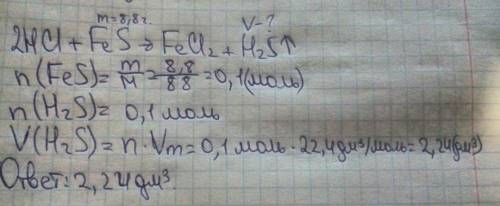 m=8,8г. V-?
2HCl + FeS → FeCl₂ + H₂S↑
n(FeS)= m/M = 8,8/88 = 0,1(моль)
n(H₂S)= 0,1 моль
V(H₂S)= n · Vm = 0,1 моль · 22,4 дм³/моль = 2,24(дм³)
Ответ: 2,24 дм³.